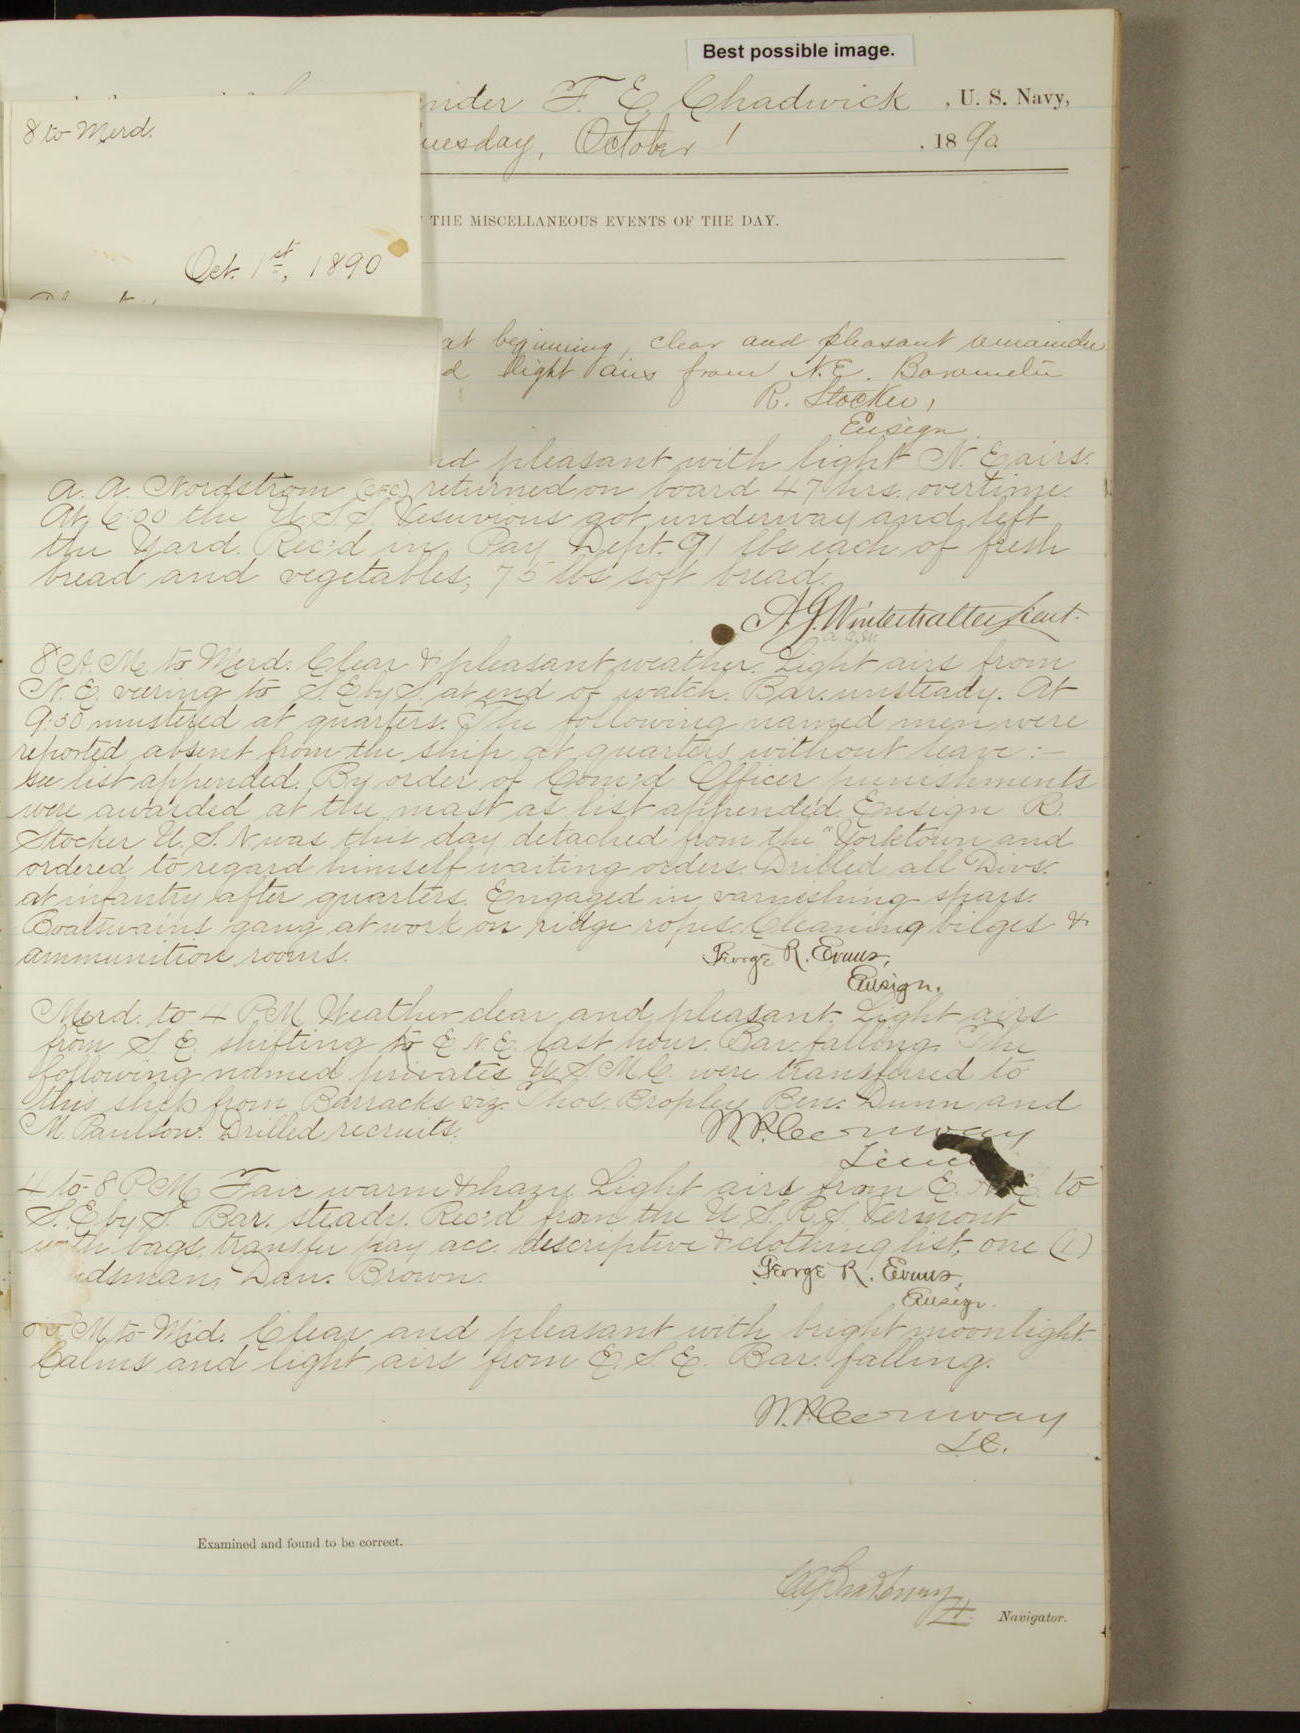 Best possible image.
nder F. E. Chadwick , U. S. Navy,
8 to Merd.
uesday, October 1 , 1890
THE MISCELLANEOUS EVENTS OF THE DAY.
Oct. 1st, 1890
at beginning, clear and pleasant remainder
d light airs from N.E. Barometer
R. Stocker,
Ensign
nd pleasant with light N. E airs.
A. A. Nordstrom (CFC) returned on board 47 hrs. overtime.
At 6:00 the U.S.S. Vesuvious got underway and left
the Yard. Rec'd in Pay Dept. 91 lbs each of fresh
bread and vegetables, 75 lbs soft bread.
A. G. Winterhalter Lieut.
8 A.M. to Merd. Clear & pleasant weather. Light airs from
N. E. veering to S.E by S. at end of watch. Bar. unsteady. At
9:30 mustered at quarters. The following named men were
reported absent from the ship at quarters without leave :-
see list appended. By order of Com'd Officer punishments
were awarded at the mast as list appended. Ensign R.
Stocker U. S. N was this day detached from the "Yorktown and
ordered to regard himself waiting orders. Drilled all Divs.
at infantry after quarters. Engaged in varnishing spars.
Boatswains gang at work on ridge ropes. Cleaning bilges &
ammunition rooms.
George R. Evans,
Ensign.
Merd. to 4 P.M. Weather clear and pleasant. Light airs
from S. E. shifting to E. N. E. last hour. Bar. falling. The
following named privates U.S.M.C. were transferred to
this ship from Barracks viz. Thos. Bropley Ben. Dunn and
M. Paulson. Drilled recruits.
W. P. Conway
4 to 8 P.M. Fair warm & hazy. Light airs from E. N. E. to
S. E by S. Bar. steady. Rec'd from the U.S.R.S. Vermont
with bags, transfer pay acc. descriptive & clothing list, one (1)
dsman, Dan. Brown.
George R. Evans,
Ensign.
8 P.M. to Mid. Clear and pleasant with bright moonlight.
Calms and light airs from E. S. E. Bar. falling.
W. P. Conway
Lt.
Examined and found to be correct.
Navigator.